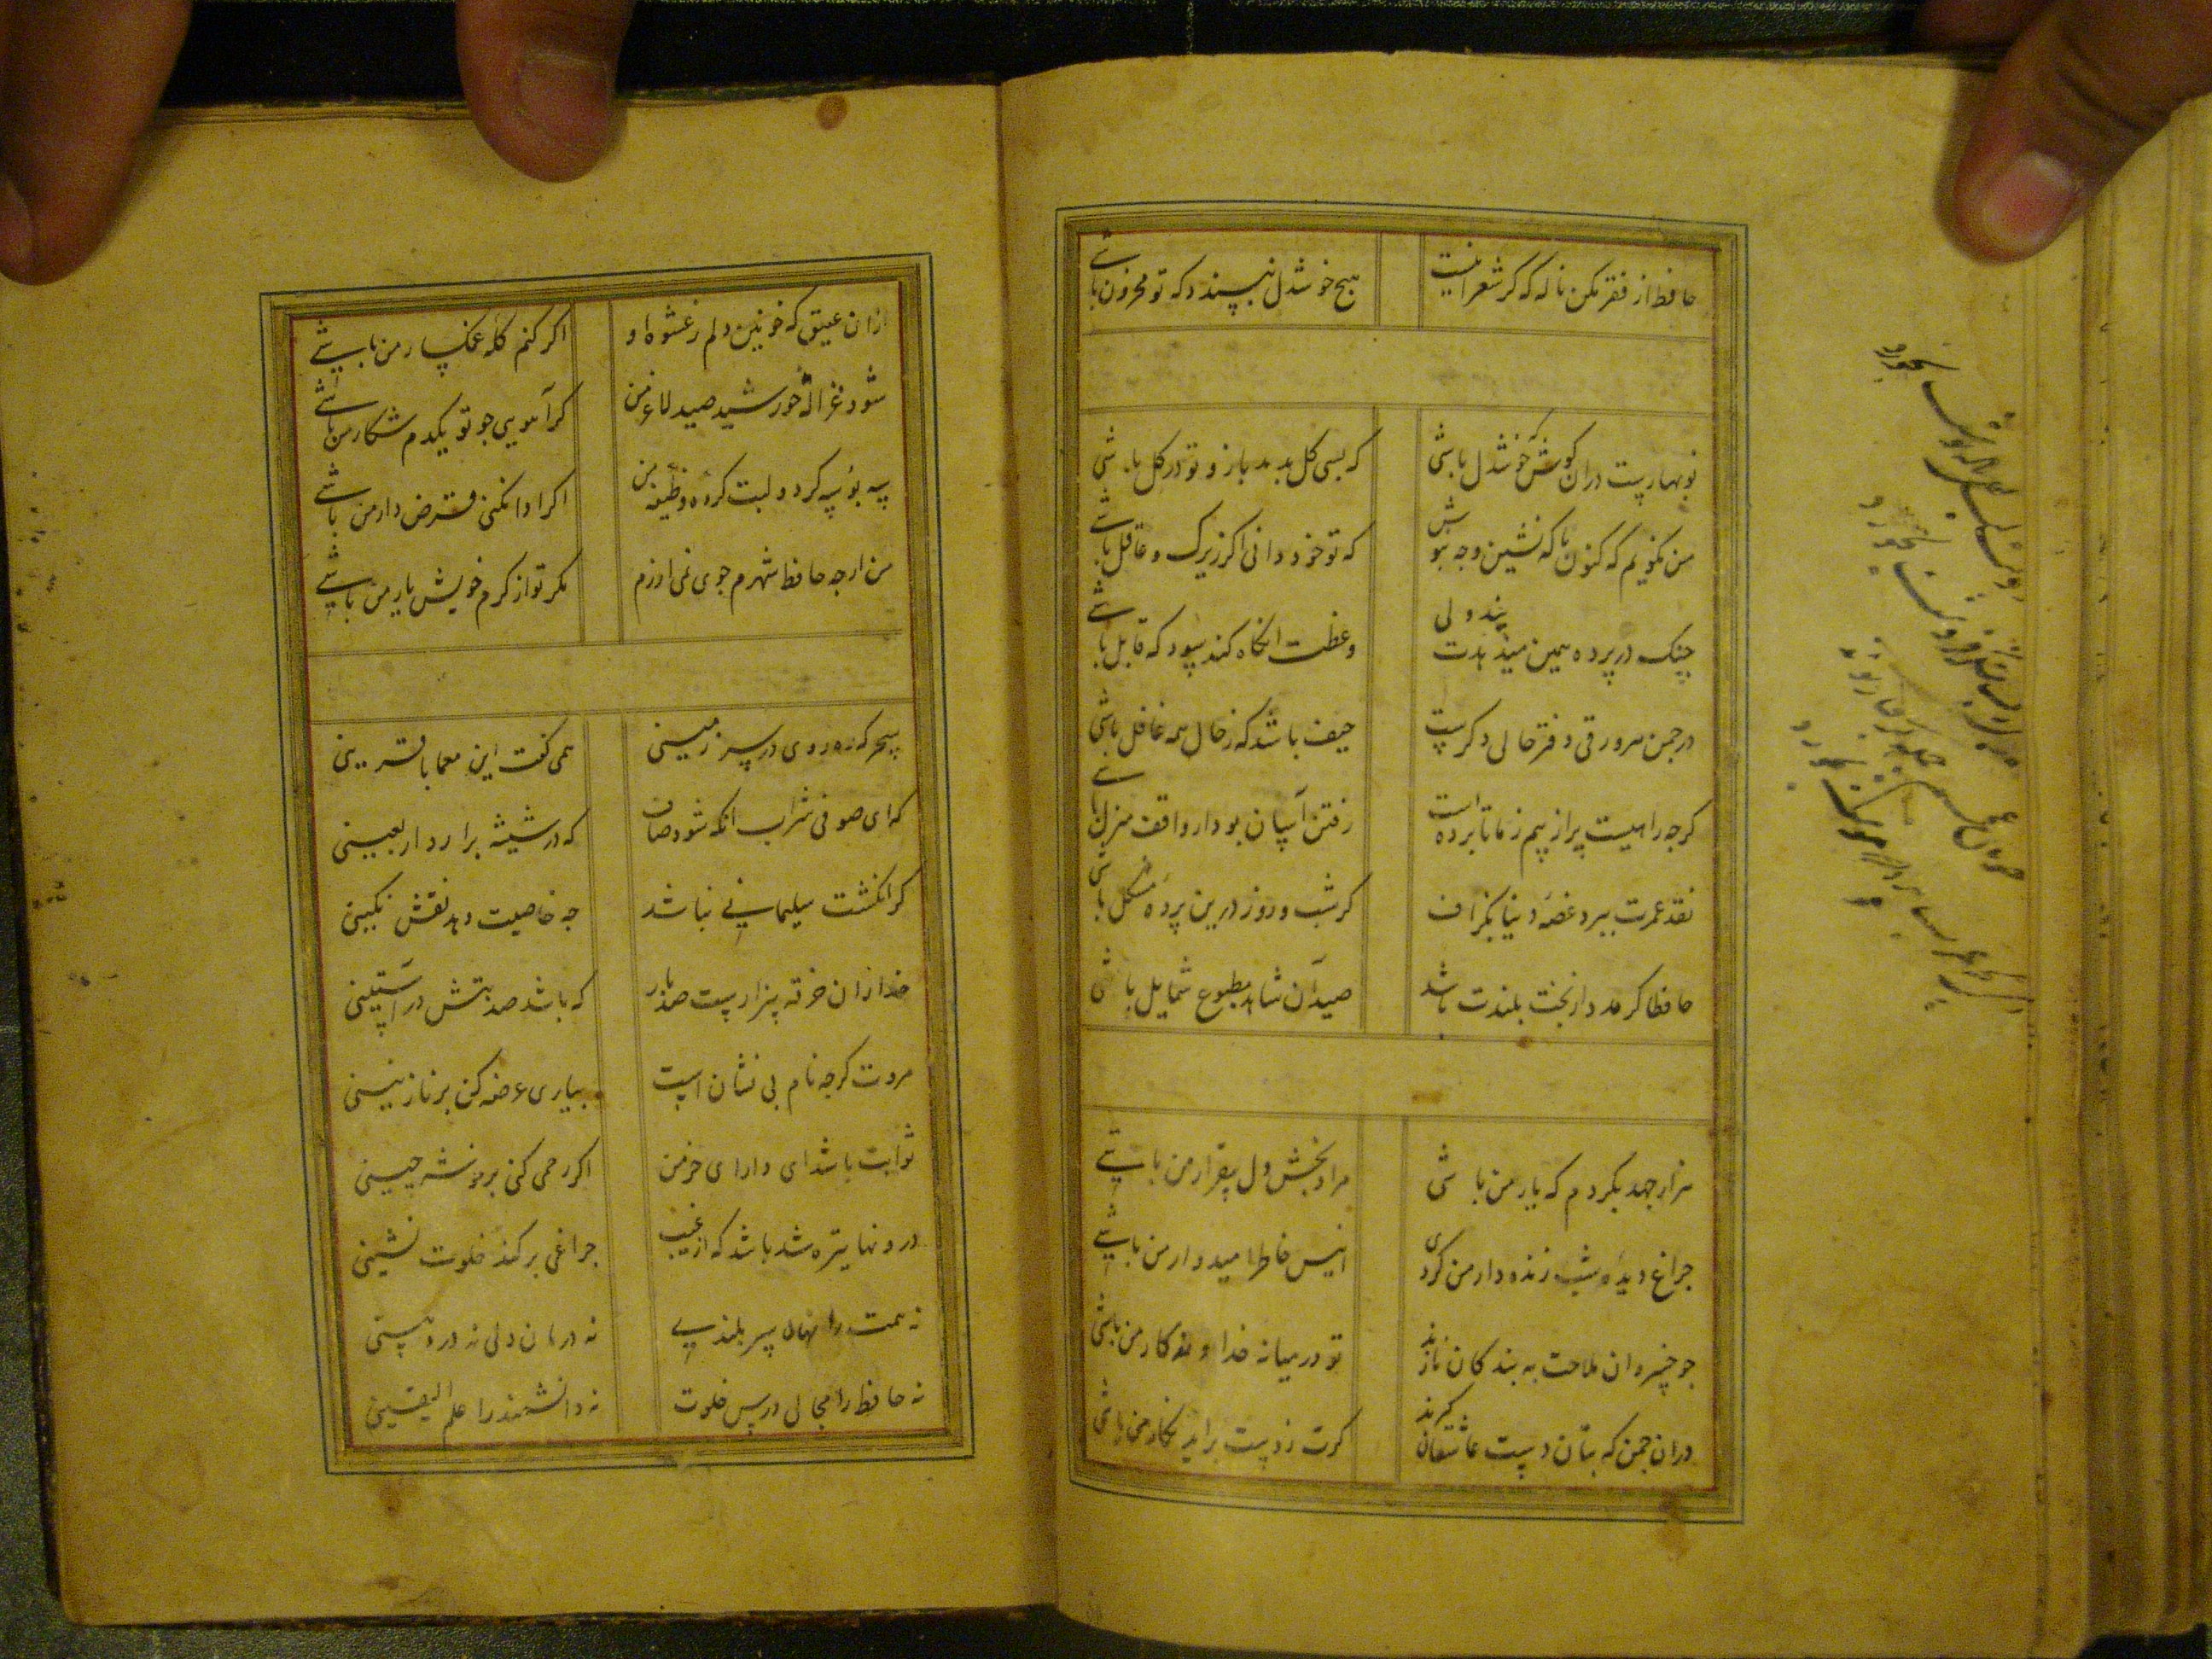 حافظ از فقر مکن ناله که کر شعر اینست
هیچ خوشدل نپسندد که تو محزون باشی
نوبهارست دران کوش که خوشدل باشی
که بسی کل بدمد باز و تو در کل باشی
من نکویم که کنون با که نشین و جه بنوش
که تو خود دانی اکر زیرک و عاقل باشی
جنک در پرده همین میدهدت پند ولی
وعظت انکاه کند سود که قابل باشی
در جمن هر ورقی دفتر حالی دکرست
حیف باشد که ز حال همه غافل باشی
کرجه راهیست پر از بیم ز ما تا بر دوست
رفتن آسان بود ار واقف منزل باشی
نقد عمرت ببرد غصه دنیا بکزاف
کر شب و روز درین پرده مشکل باشی
حافظا کر مدد از بخت بلندت باشد
صید آن شاهد مطبوع شمایل باشی
هزار جهد بکردم که یار من باشی
مراد بخش دل بیقرار من باشی
جراغ دیده شب زنده دار من کردی
انیس خاطر امیدوار من باشی
جو خسروان ملاحت به بندکان نازند
تو در میانه خداوندکار من باشی
دران جمن که بتان دست عاشقان کیرند
کرت ز دست براید نکار من باشی
ازان عقیق که خونین دلم ز عشوه او
اکر کنم کله غمکسار من باشی
شود غزاله خورشید صید لاغر من
کر آهویی جو تو یکدم شکار من باشی
سه بوسه کز دو لبت کرده وظیفه من
اکر ادا نکنی قرض دار من باشی
من ارجه حافظ شهرم جوی نمی ارزم
مکر تو از کرم خویش یار من باشی
سحرکه ره روی در سرزمینی
همی کفت این معما با قرینی
که ای صوفی شراب انکه شود صاف
که در شیشه برارد اربعینی
کر انکشت سلیمانی نباشد
جه خاصیت دهد نقش نکینی
خدا زان خرقه بیزارست صد بار
که باشد صد بتش در آستینی
مروت کرجه نام بی نشان است
نیازی عرضه کن بر نازنینی
ثوابت باشد ای دارای خرمن
اکر رحمی کنی بر خوشه جینی
درونها تیره شد باشد که از غیب
جراغی بر کند خلوت نشینی
نه همت را نهال سر بلندی
نه درمان دلی نه درد دینی
نه حافظ را مجال درس خلوت
نه دانشمند را علم الیقینی